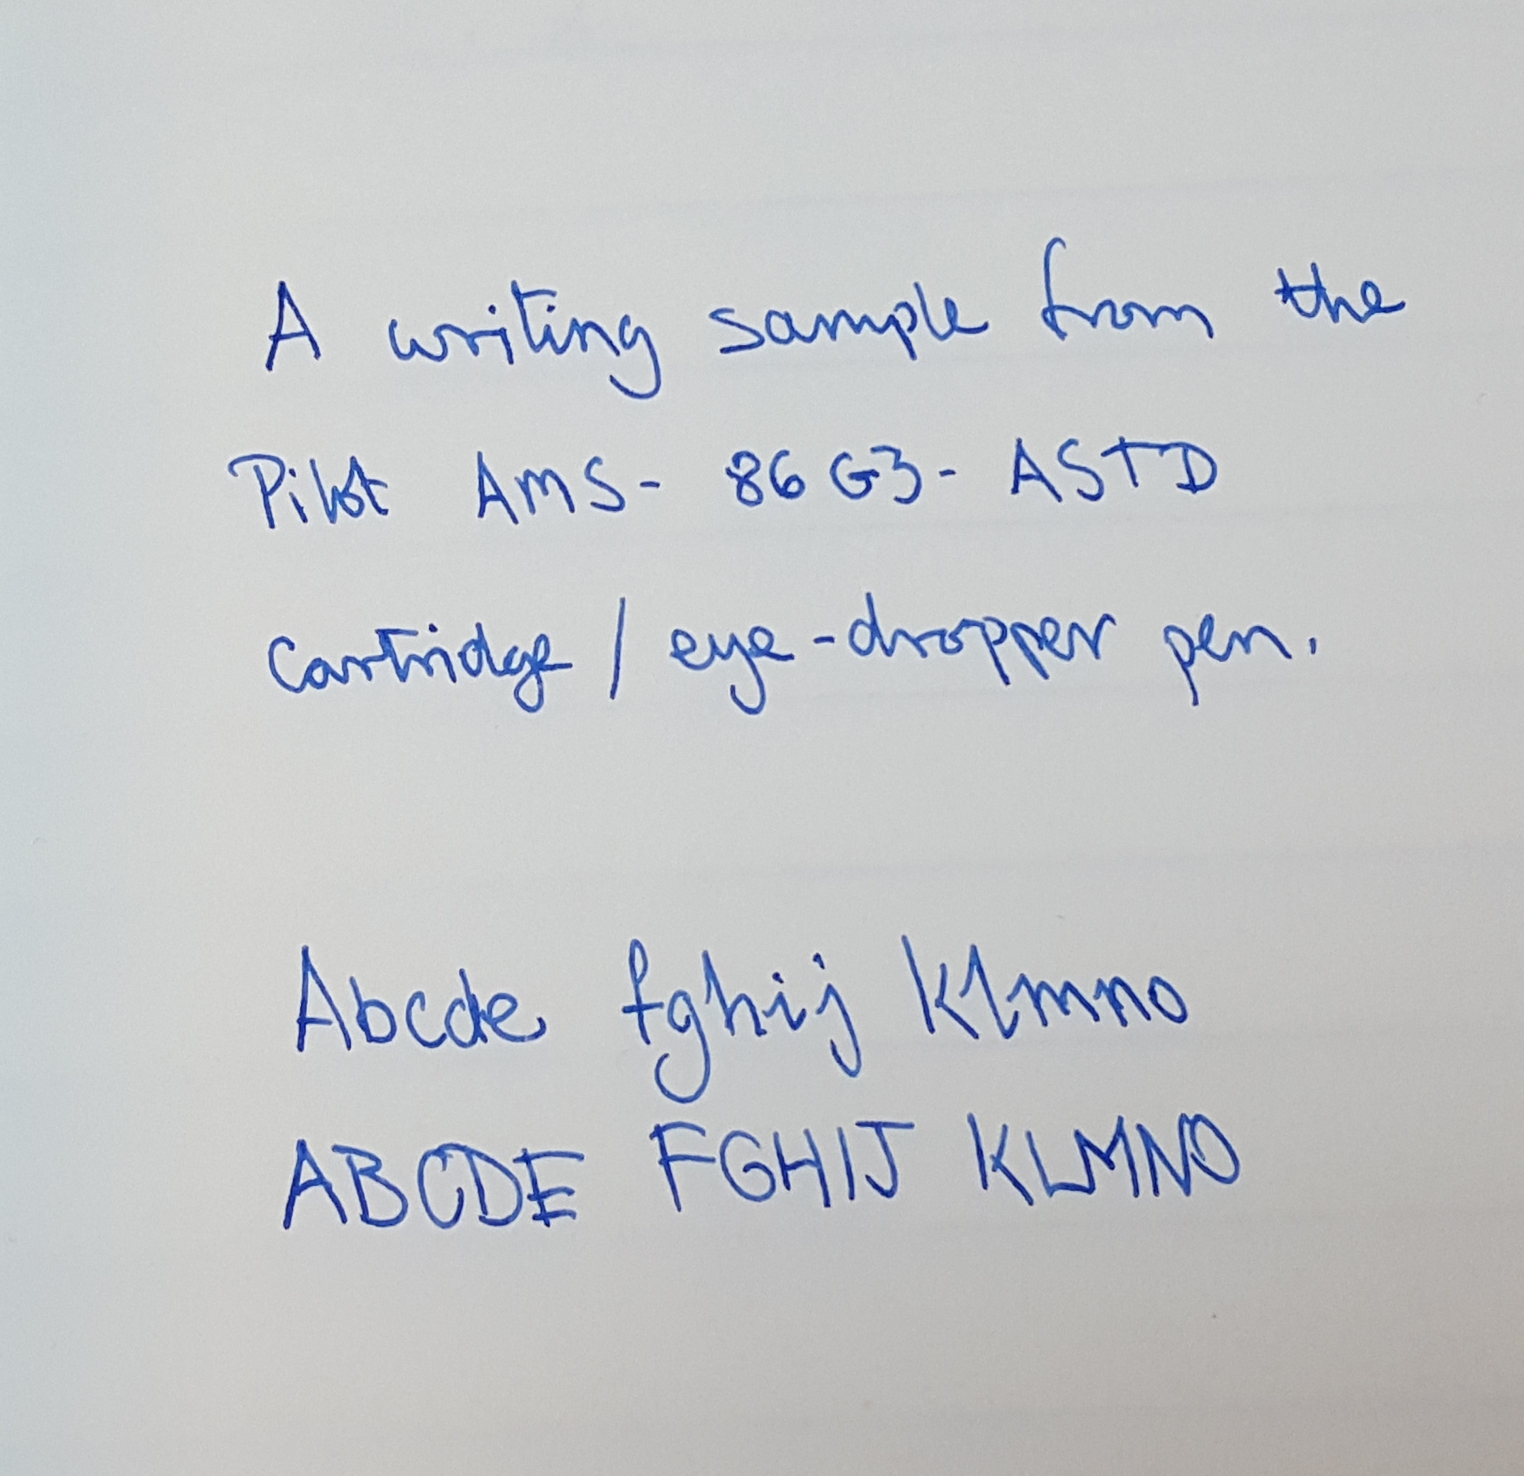 A writing sample from the
Pilot AMS- 86G3- ASTD
Cartridge / eye-dropper pen.
Abcde fghij klmno
ABCDE FGHIJ KLMNO